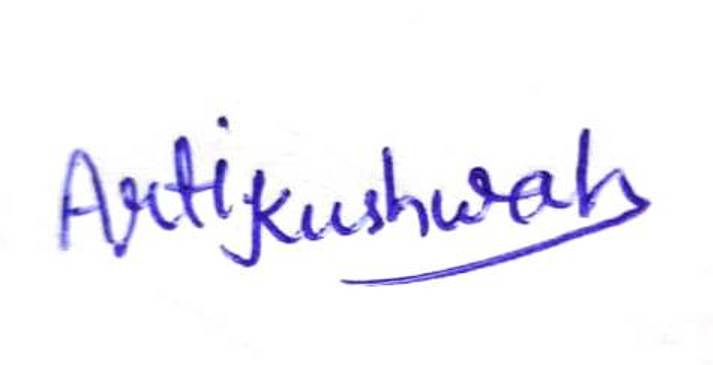 Arti Kushwah